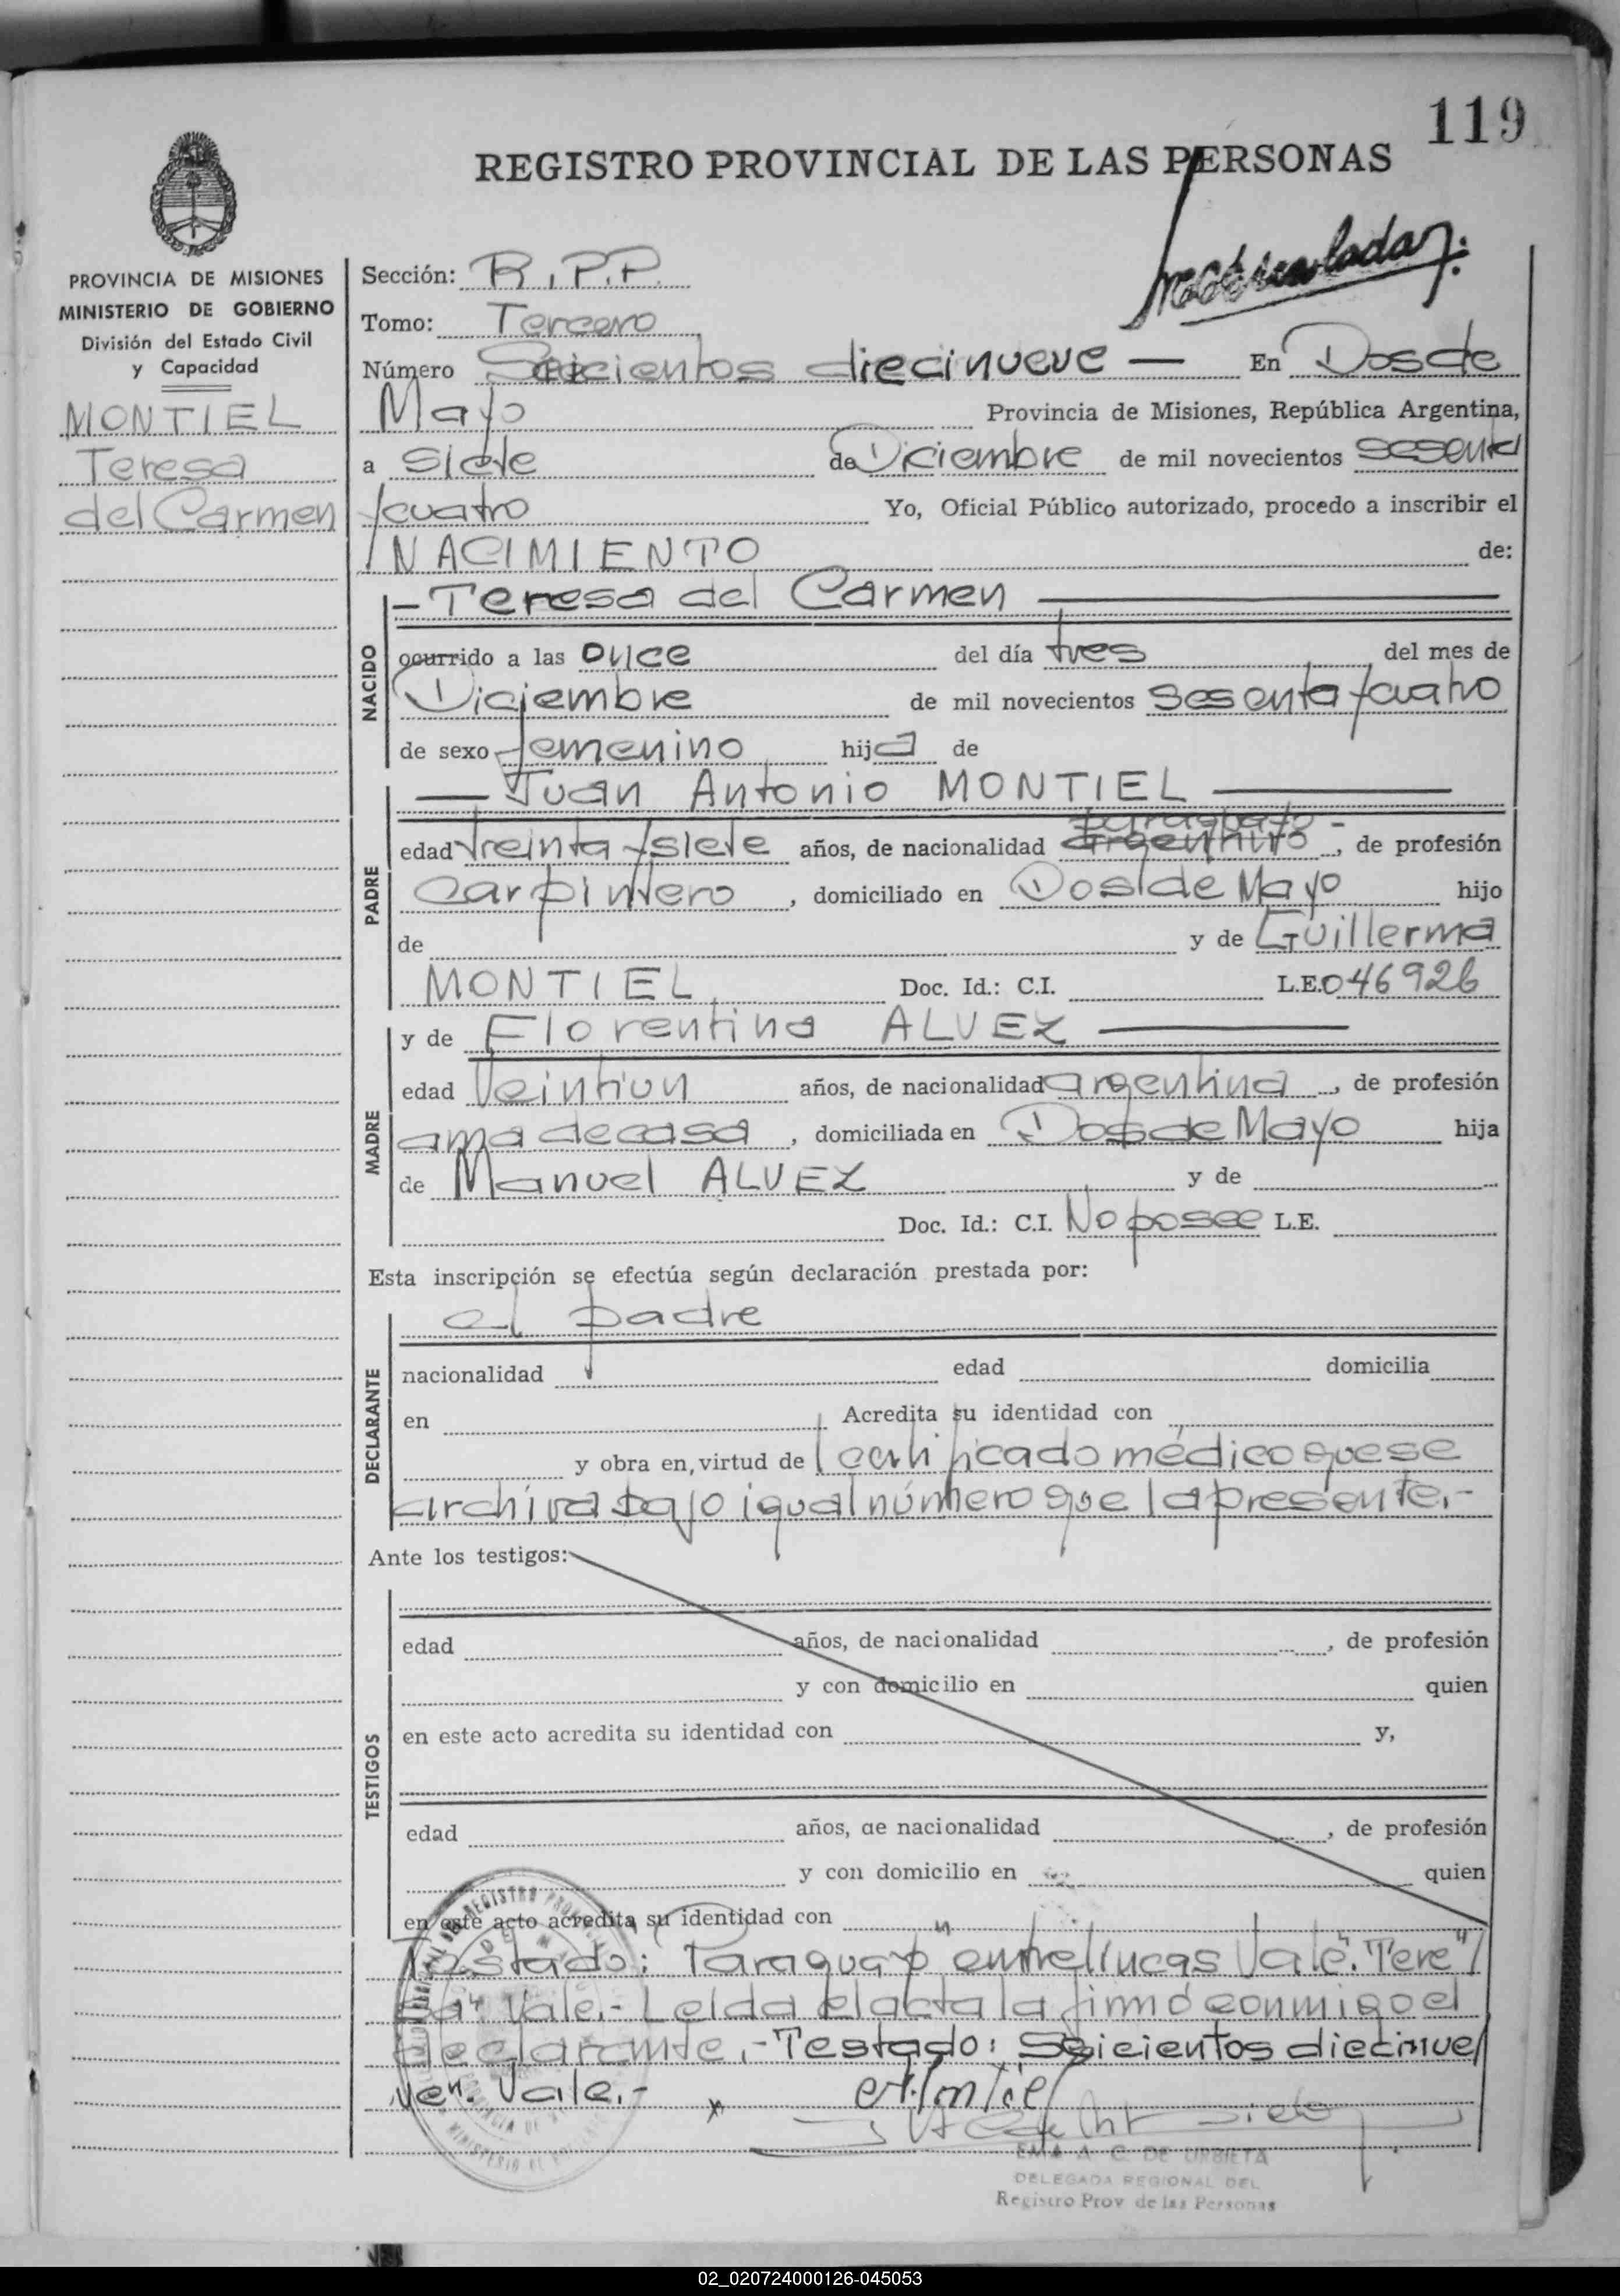 119
REGISTRO PROVINCIAL DE LAS PERSONAS
PROVINCIA DE MISIONES
MINISTERIO DE GOBIERNO
División del Estado Civil
y Capacidad
MONTIEL
Teresa
del Carmen
Sección: R.P.P.
Tomo: Tercero
Número Seicientos diecinueve — En Dos de
Mayo Provincia de Misiones, República Argentina,
a siete de Diciembre de mil novecientos sesenta
y cuatro Yo, Oficial Público autorizado, procedo a inscribir el
NACIMIENTO de:
NACIDO
- Teresa del Carmen
ocurrido a las once del día tres del mes de
Diciembre de mil novecientos sesenta y cuatro
de sexo femenino hija de
— Juan Antonio MONTIEL —
PADRE
paraguayo -
edad treinta y siete años, de nacionalidad argentino, de profesión
carpintero, domiciliado en Dos de Mayo hijo
de y de Guillerma
MONTIEL Doc. Id.: C.I. L.E. 046926
y de Florentina ALVEZ —
MADRE
edad Veintiun años, de nacionalidad argentina, de profesión
ama de casa, domiciliada en Dos de Mayo hija
de Manuel ALVEZ y de
Doc. Id.: C.I. No posee L.E.
Esta inscripción se efectúa según declaración prestada por:
el padre
DECLARANTE
nacionalidad edad domicilia
en Acredita su identidad con
y obra en virtud de certificado médico que se
archiva bajo igual número que la presente.-
Ante los testigos:
TESTIGOS
edad años, de nacionalidad , de profesión
y con domicilio en quien
en este acto acredita su identidad con y,
edad años, de nacionalidad , de profesión
y con domicilio en quien
en este acto acredita su identidad con
Testado: Paraguayo entrelíneas Vale. "Tere"/
sa" Vale.- Leida el acta la firmó conmigo el
declarante.- Testado: Seicientos diecinue/
ve". Vale.-
x
EMA A C. DE URBIETA
DELEGADA REGIONAL DEL
Registro Prov de las Personas
02_020724000126-045053